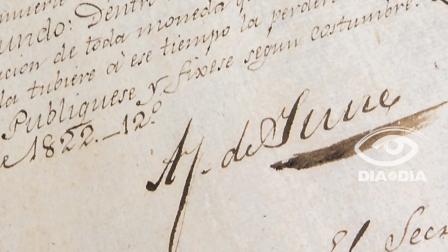 undo: Dentro
cion de toda moneda
la tubiere a ese tiempo la perderá
Publiquese y fixese segun costumbre.
e 1822.-12.º
A. J. de Sucre
DIA A DIA
El Secr